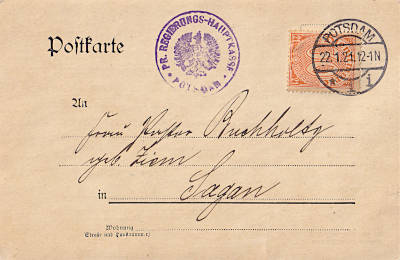 Postkarte
PR. REGIERUNGS-HAUPTKASSE
* POTSDAM *
POTSDAM
22.1.21.12-1N
i
An
Frau Pastor Buchholtz
geb. Ziem
in Sagan
Wohnung
(Straße und Hausnummer)